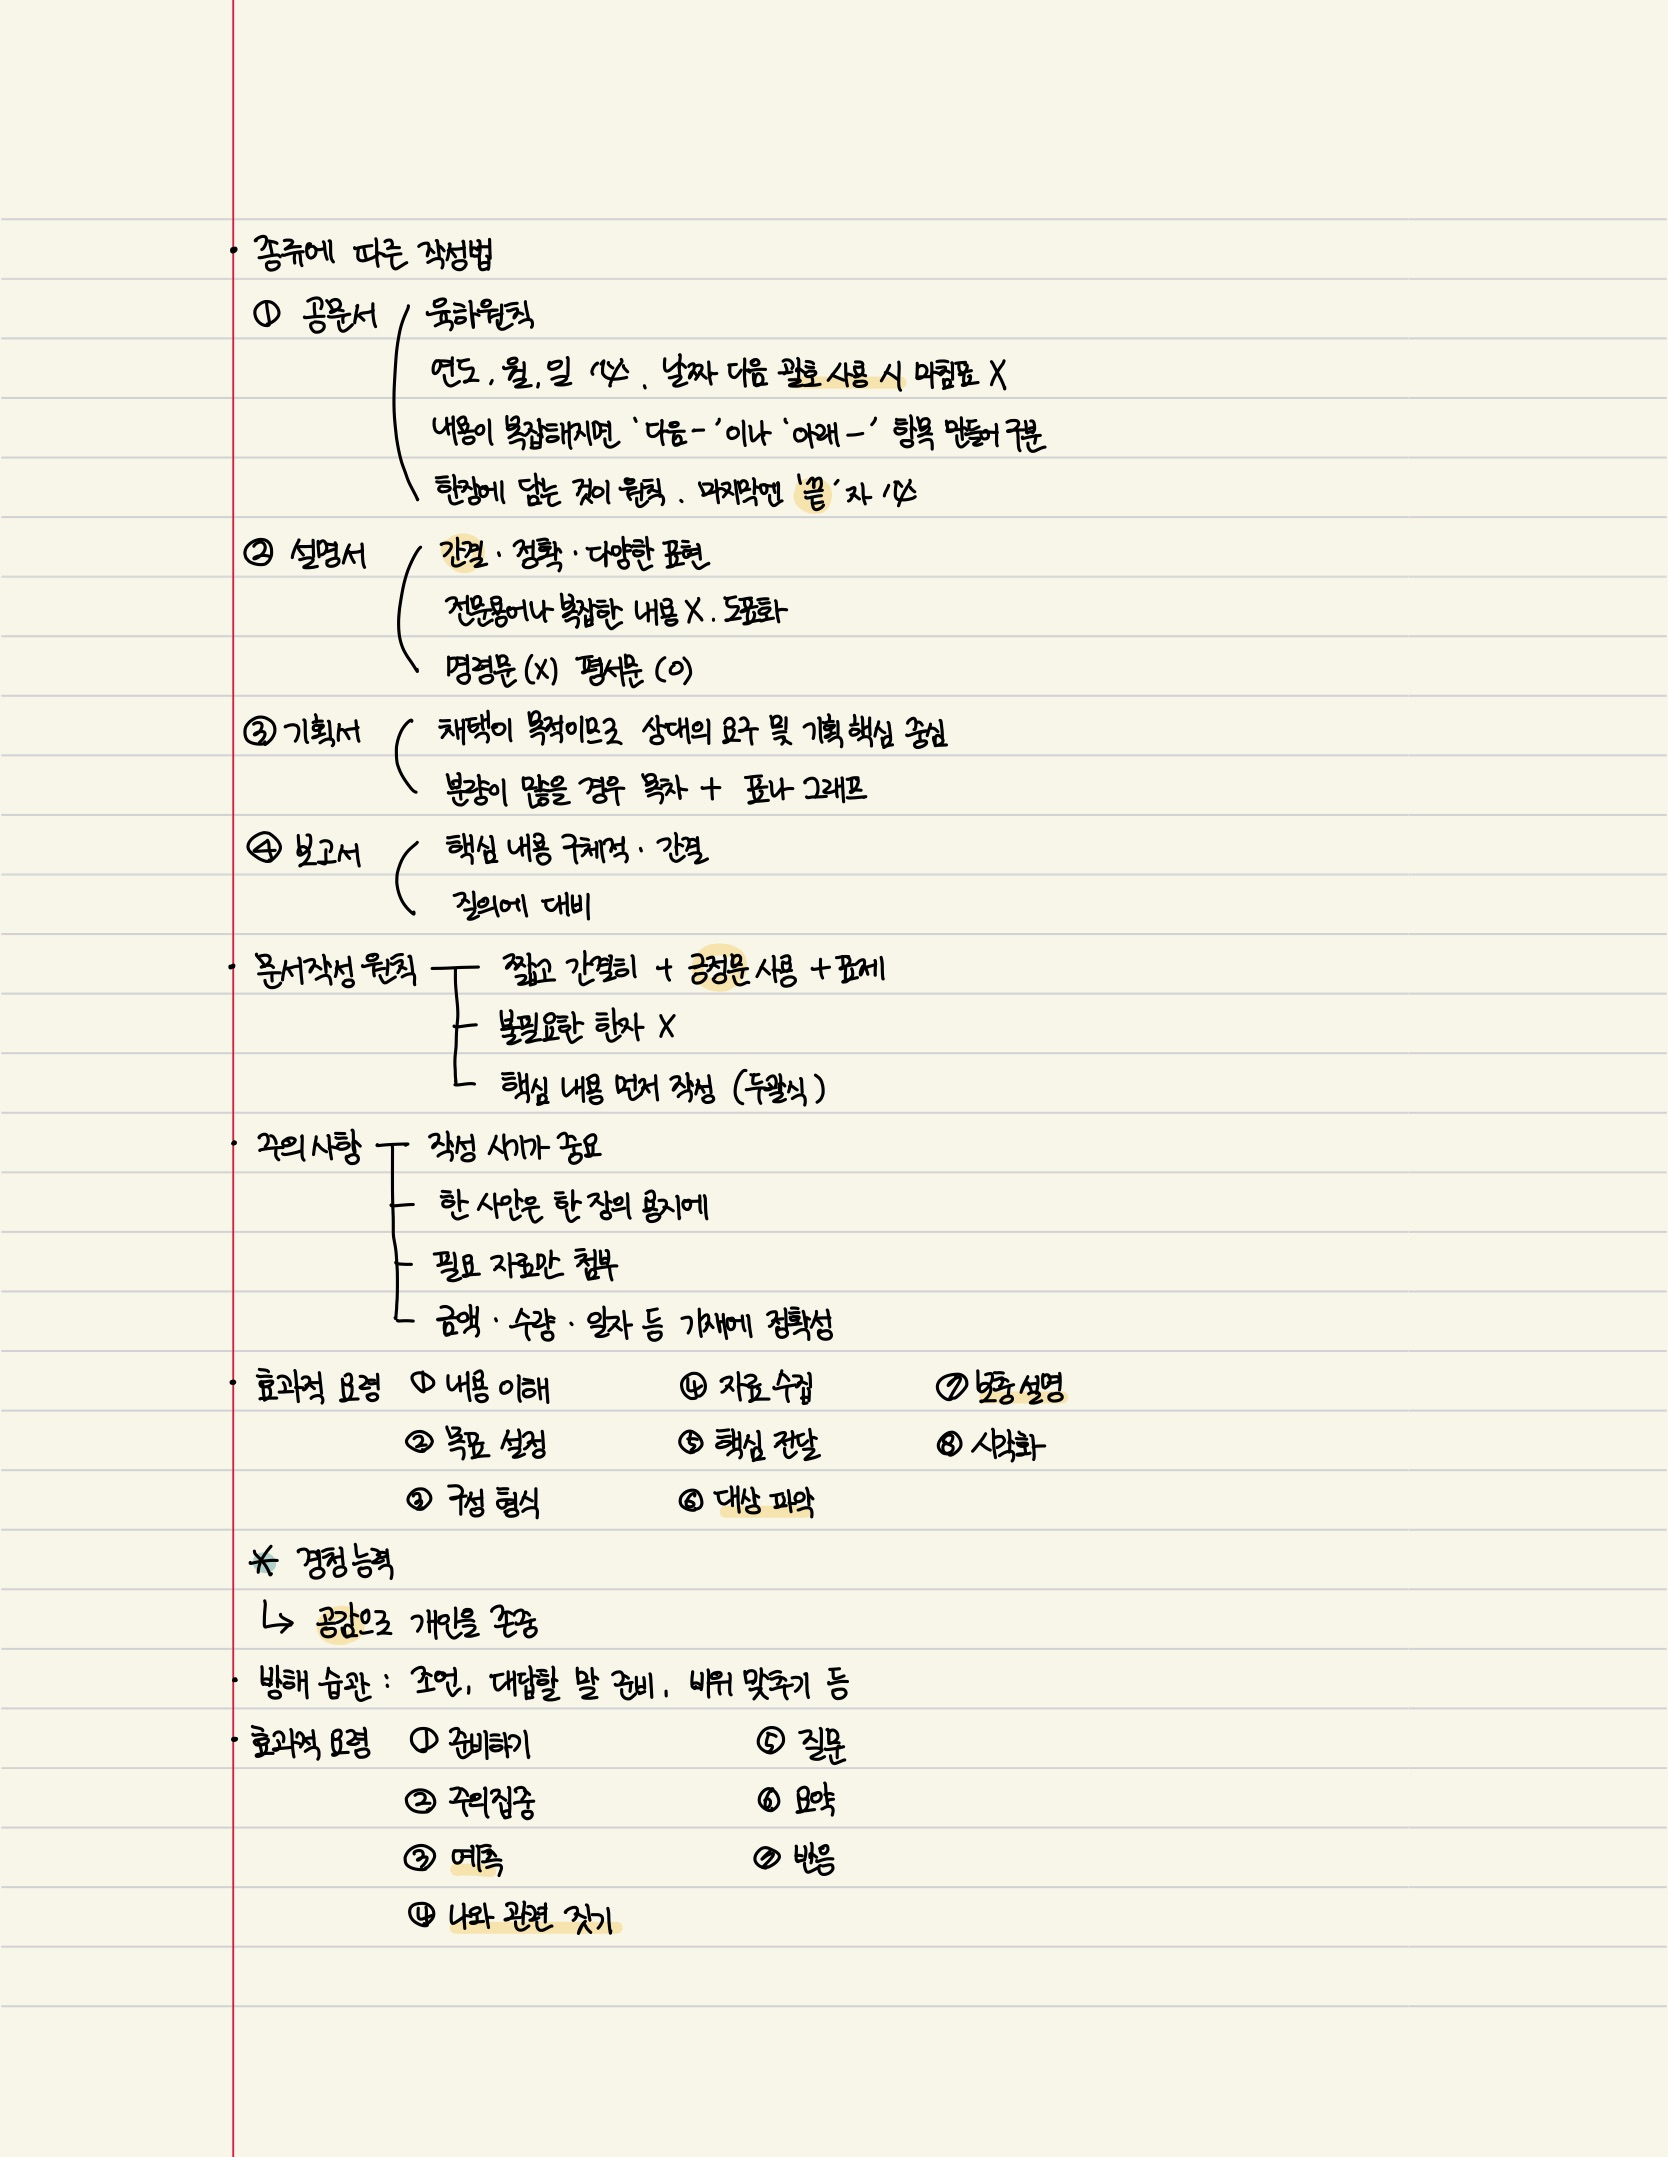 · 종류에 따른 작성법
① 공문서 육하원칙
연도, 월, 일 必. 날짜 다음 괄호 사용 시 마침표 X
내용이 복잡해지면 '다음-'이나 '아래-' 항목 만들어 구분
한장에 담는 것이 원칙. 마지막엔 '끝'자 必
② 설명서 간결·정확·다양한 표현
전문용어나 복잡한 내용 X. 도표화
명령문(X) 평서문(O)
③ 기획서 채택이 목적이므로 상대의 요구 및 기획 핵심 중심
분량이 많을 경우 목차 + 표나 그래프
④ 보고서 핵심 내용 구체적·간결
질의에 대비
· 문서작성 원칙 짧고 간결히 + 긍정문 사용 + 표제
불필요한 한자 X
핵심 내용 먼저 작성 (두괄식)
· 주의사항 작성 시기가 중요
한 사안은 한 장의 용지에
필요 자료만 첨부
금액·수량·일자 등 기재에 정확성
· 효과적 요령 ① 내용 이해 ④ 자료 수집 ⑦ 보충 설명
② 목표 설정 ⑤ 핵심 전달 ⑧ 시각화
③ 구성 형식 ⑥ 대상 파악
* 경청능력
↳ 공감으로 개인을 존중
· 방해 습관 : 조언, 대답할 말 준비, 비위 맞추기 등
· 효과적 요령 ① 준비하기 ⑤ 질문
② 주의집중 ⑥ 요약
③ 예측 ⑦ 반응
④ 나와 관련 짓기